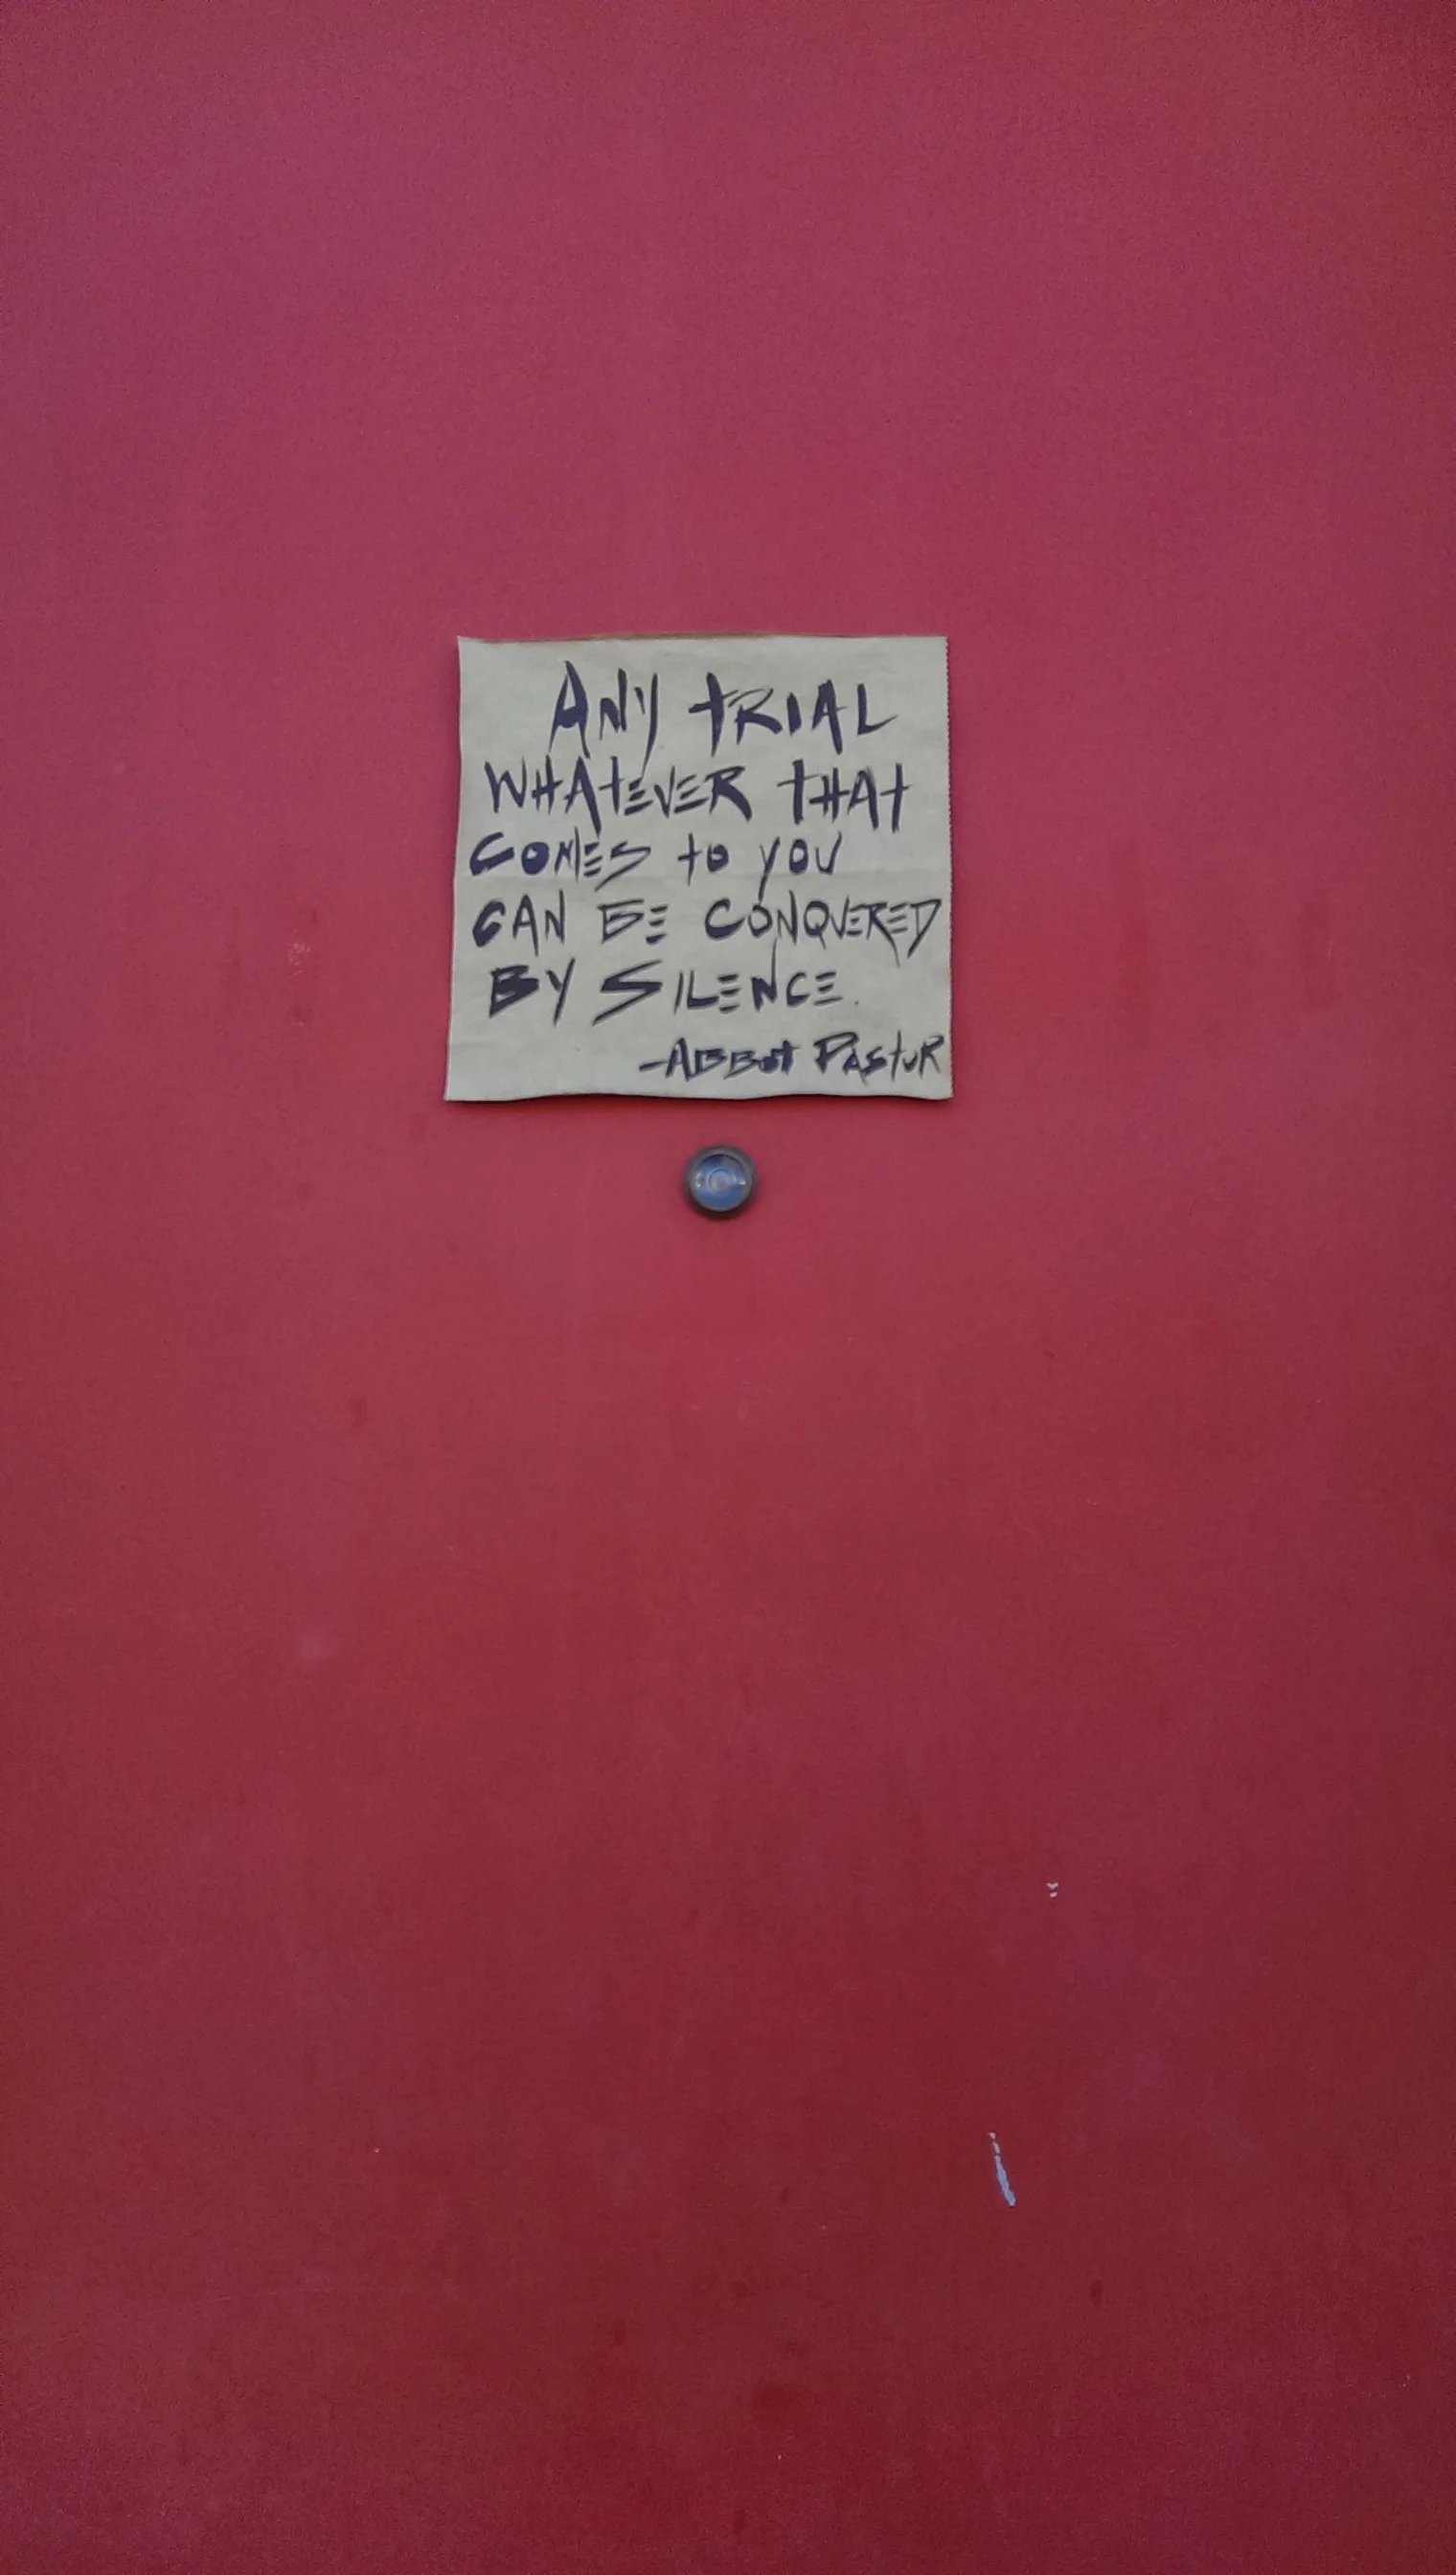 ANY TRIAL
WHATEVER THAT
COMES TO YOU
CAN BE CONQUERED
BY SILENCE.
-ABBOT PASTUR